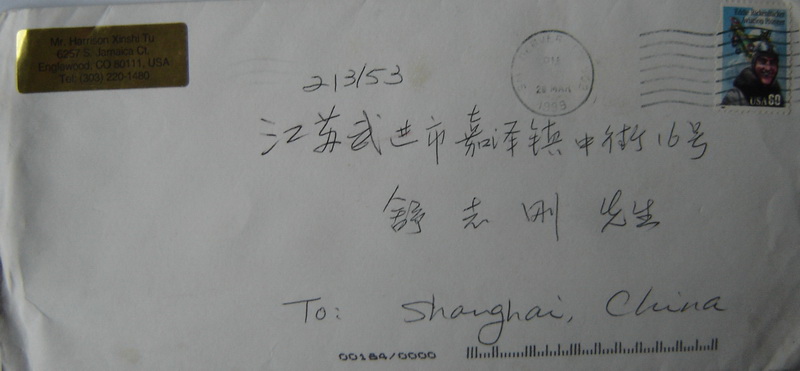 Mr. Harrison Xinshi Tu
6257 S. Jamaica Ct.
Englewood, CO 80111, USA
Tel: (303) 220-1480
Eddie Rickenbacker
Aviation Pioneer
USA 60
213153
江苏武进市嘉泽镇中街16号
舒志刚 先生
To: Shanghai, China
00184/0000